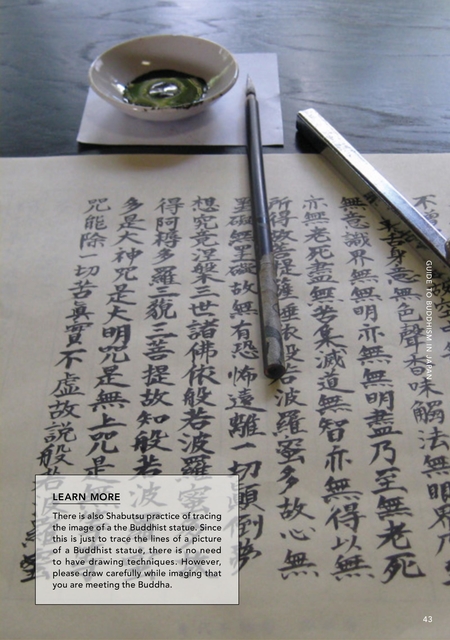 不增
舌身意無色聲香味觸法無眼界乃
無意識界無無明亦無無明盡乃至無老死
亦無老死盡無苦集滅道無智亦無得以無
所得故菩提薩埵依般若波羅蜜多故心無
罣礙無罣礙故無有恐怖遠離一切顛倒夢
想究竟涅槃三世諸佛依般若波羅蜜
得阿耨多羅三藐三菩提故知般若波
多是大神咒是大明咒是無上咒是無
咒能除一切苦眞實不虛故說般若
GUIDE TO BUDDHISM IN JAPAN
LEARN MORE
There is also Shabutsu practice of tracing
the image of a the Buddhist statue. Since
this is just to trace the lines of a picture
of a Buddhist statue, there is no need
to have drawing techniques. However,
please draw carefully while imaging that
you are meeting the Buddha.
43